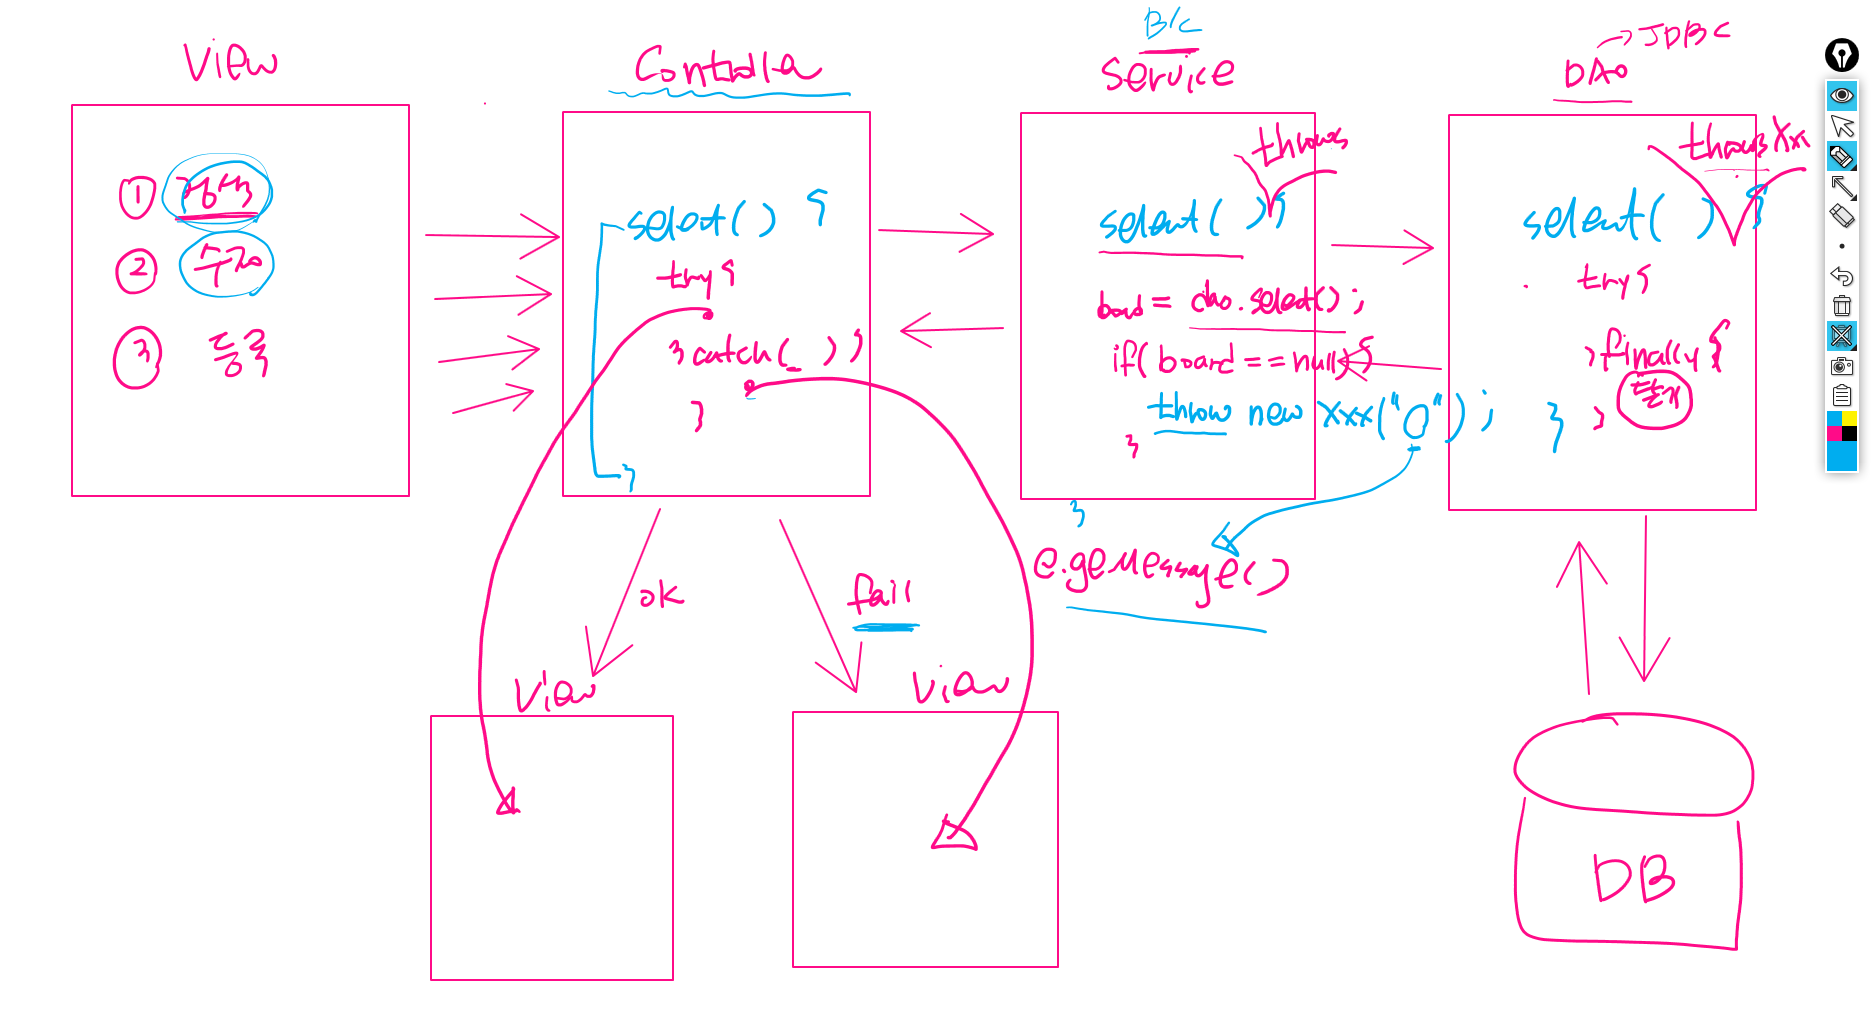 View
① 검색
② 수정
③ 등록
Controller
select() {
try{
}catch(_){
}
}
ok
fail
View
View
B/C
Service
throws
select( ){
board = dao.select();
if(board==null){
throw new Xxx("0");
}
}
e.geMessage()
→JDBC
DAO
throws Xxx
select( ) {
try{
}finally{
닫기
}
}
DB